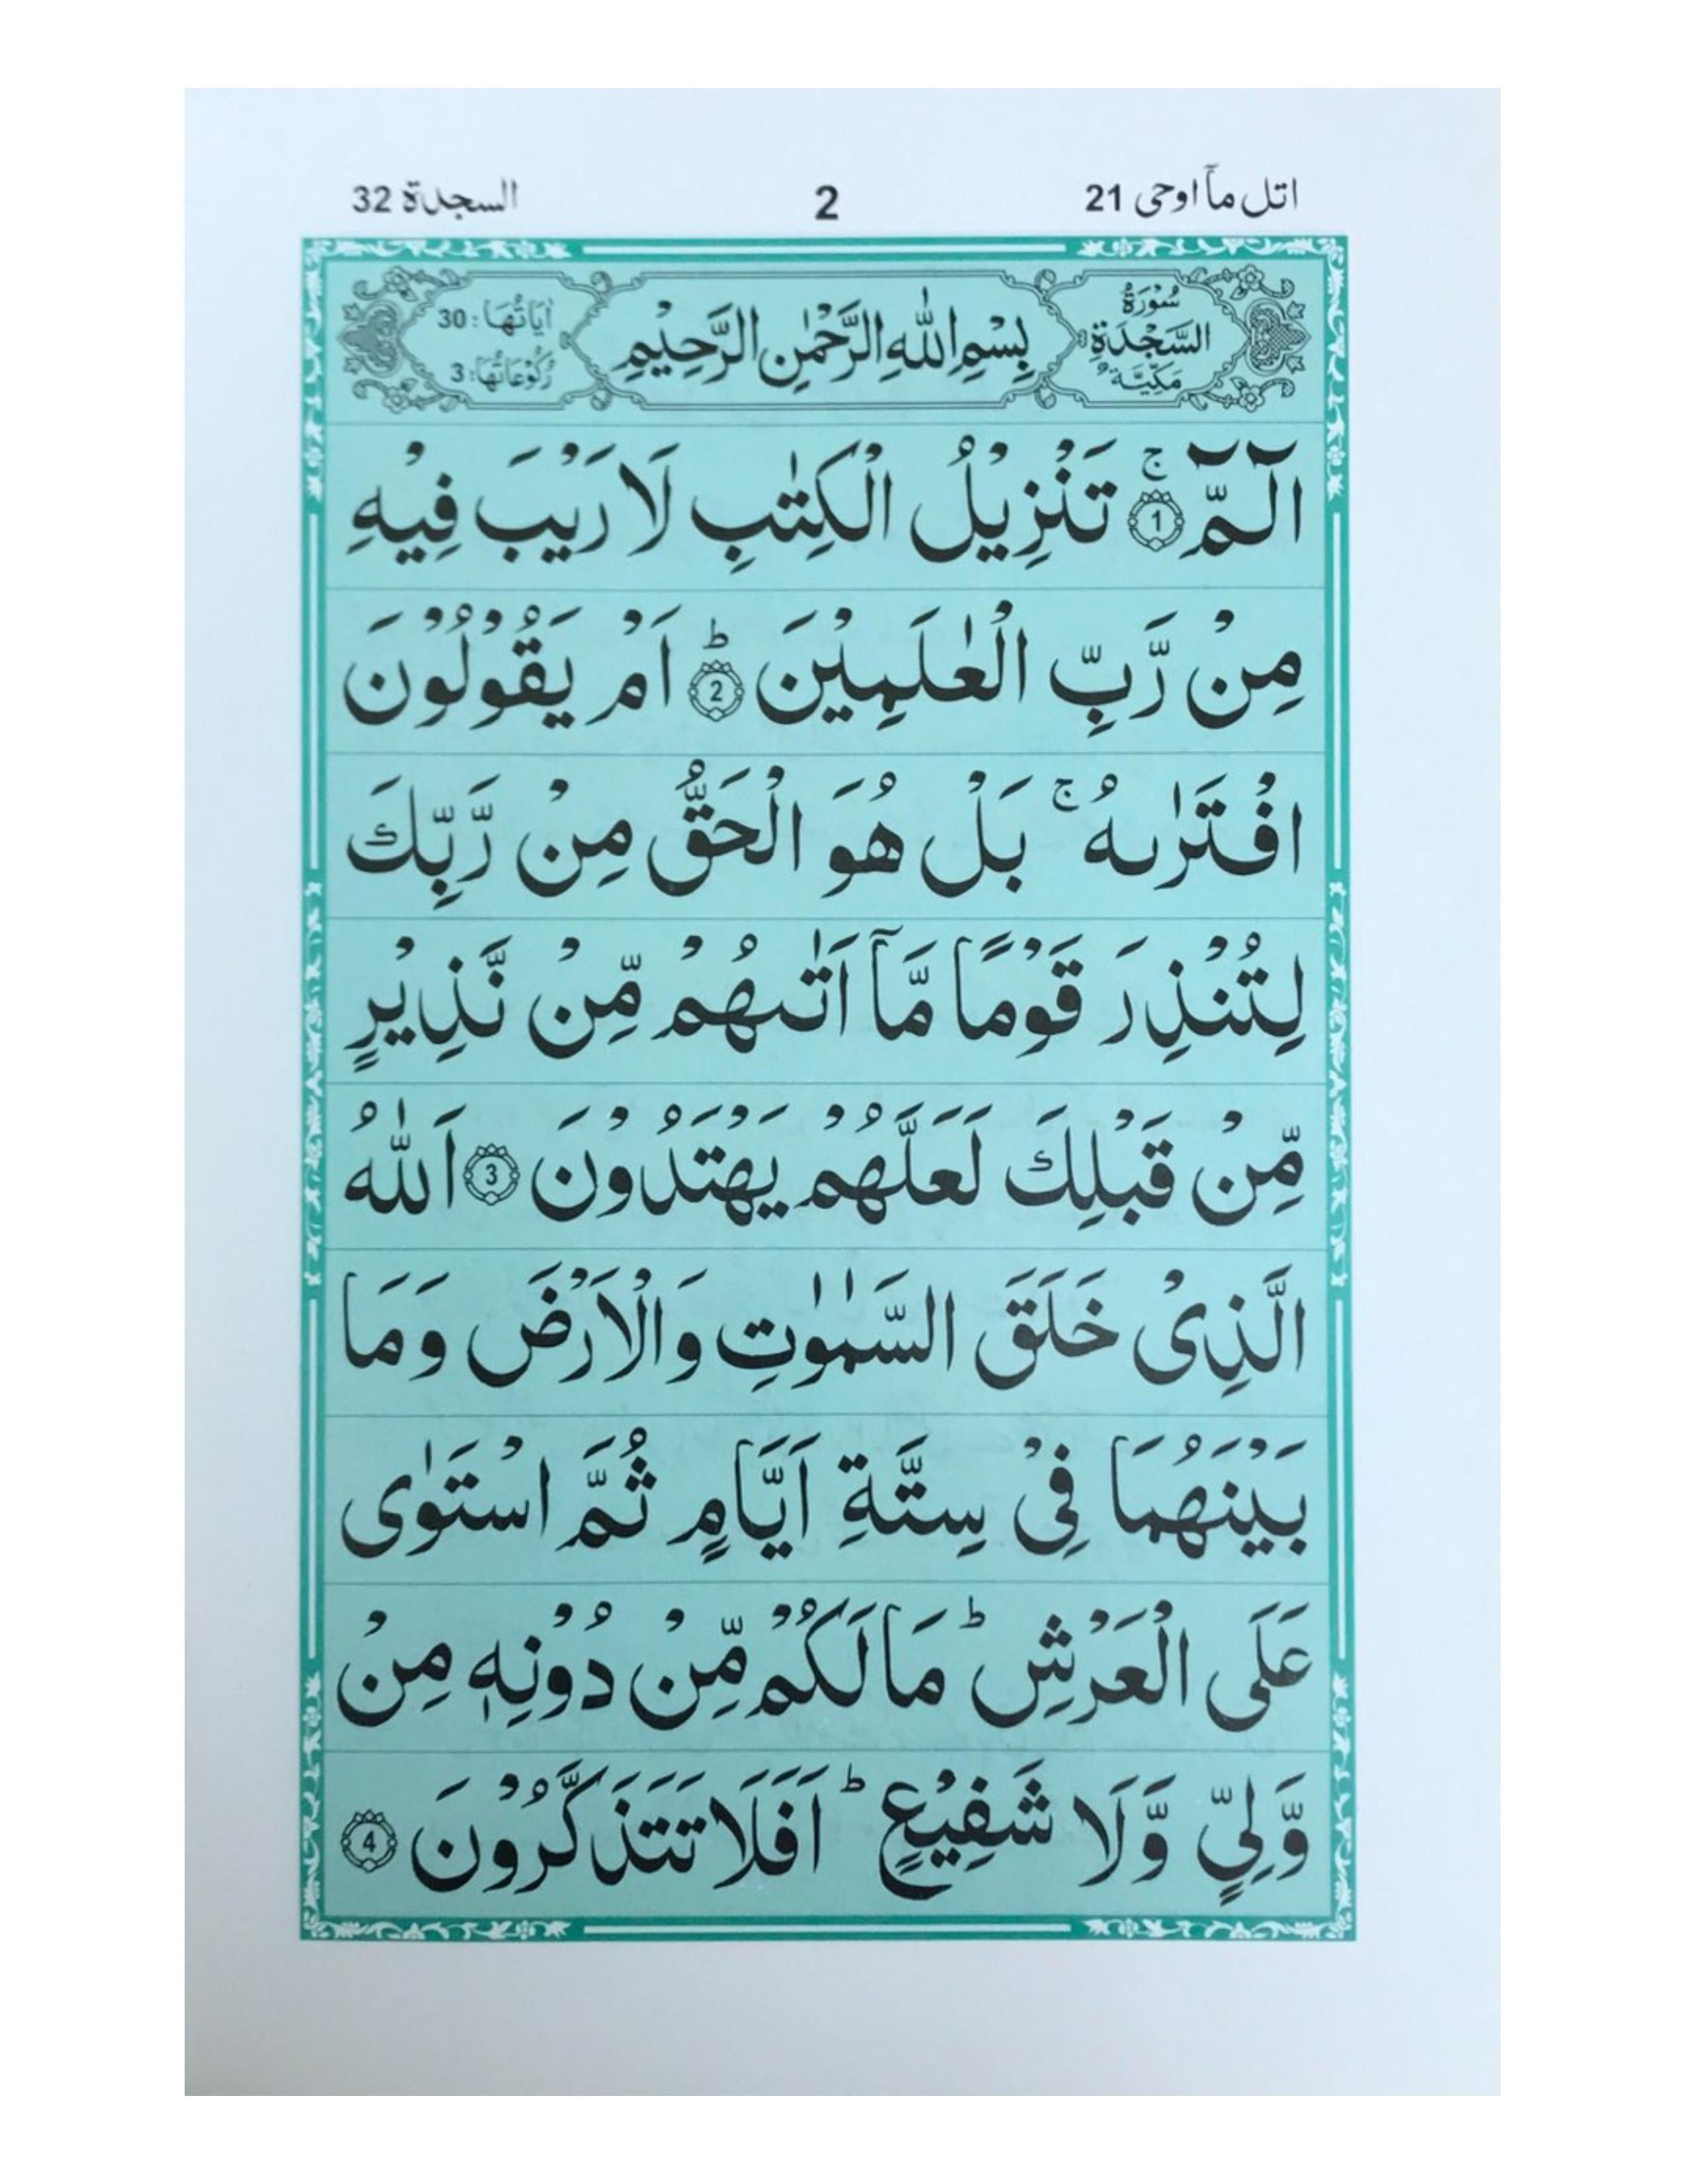 اتل مآ اوحی 21
2
السجدة 32
سُوْرَةُ
السَّجْدَةِ
مَكِّيَّةٌ
بِسْمِ اللّٰهِ الرَّحْمٰنِ الرَّحِيْمِ
اٰيَاتُهَا: 30
رُكُوْعَاتُهَا: 3
الٓمّٓ ۚ﴿1﴾ تَنْزِيْلُ الْكِتٰبِ لَا رَيْبَ فِيْهِ
مِنْ رَّبِّ الْعٰلَمِيْنَ ؕ﴿2﴾ اَمْ يَقُوْلُوْنَ
افْتَرٰىهُ ۚ بَلْ هُوَ الْحَقُّ مِنْ رَّبِّكَ
لِتُنْذِرَ قَوْمًا مَّآ اَتٰىهُمْ مِّنْ نَّذِيْرٍ
مِّنْ قَبْلِكَ لَعَلَّهُمْ يَهْتَدُوْنَ ﴿3﴾ اَللّٰهُ
الَّذِيْ خَلَقَ السَّمٰوٰتِ وَالْاَرْضَ وَمَا
بَيْنَهُمَا فِيْ سِتَّةِ اَيَّامٍ ثُمَّ اسْتَوٰى
عَلَى الْعَرْشِ ؕ مَا لَكُمْ مِّنْ دُوْنِهٖ مِنْ
وَّلِيٍّ وَّلَا شَفِيْعٍ ؕ اَفَلَا تَتَذَكَّرُوْنَ ﴿4﴾